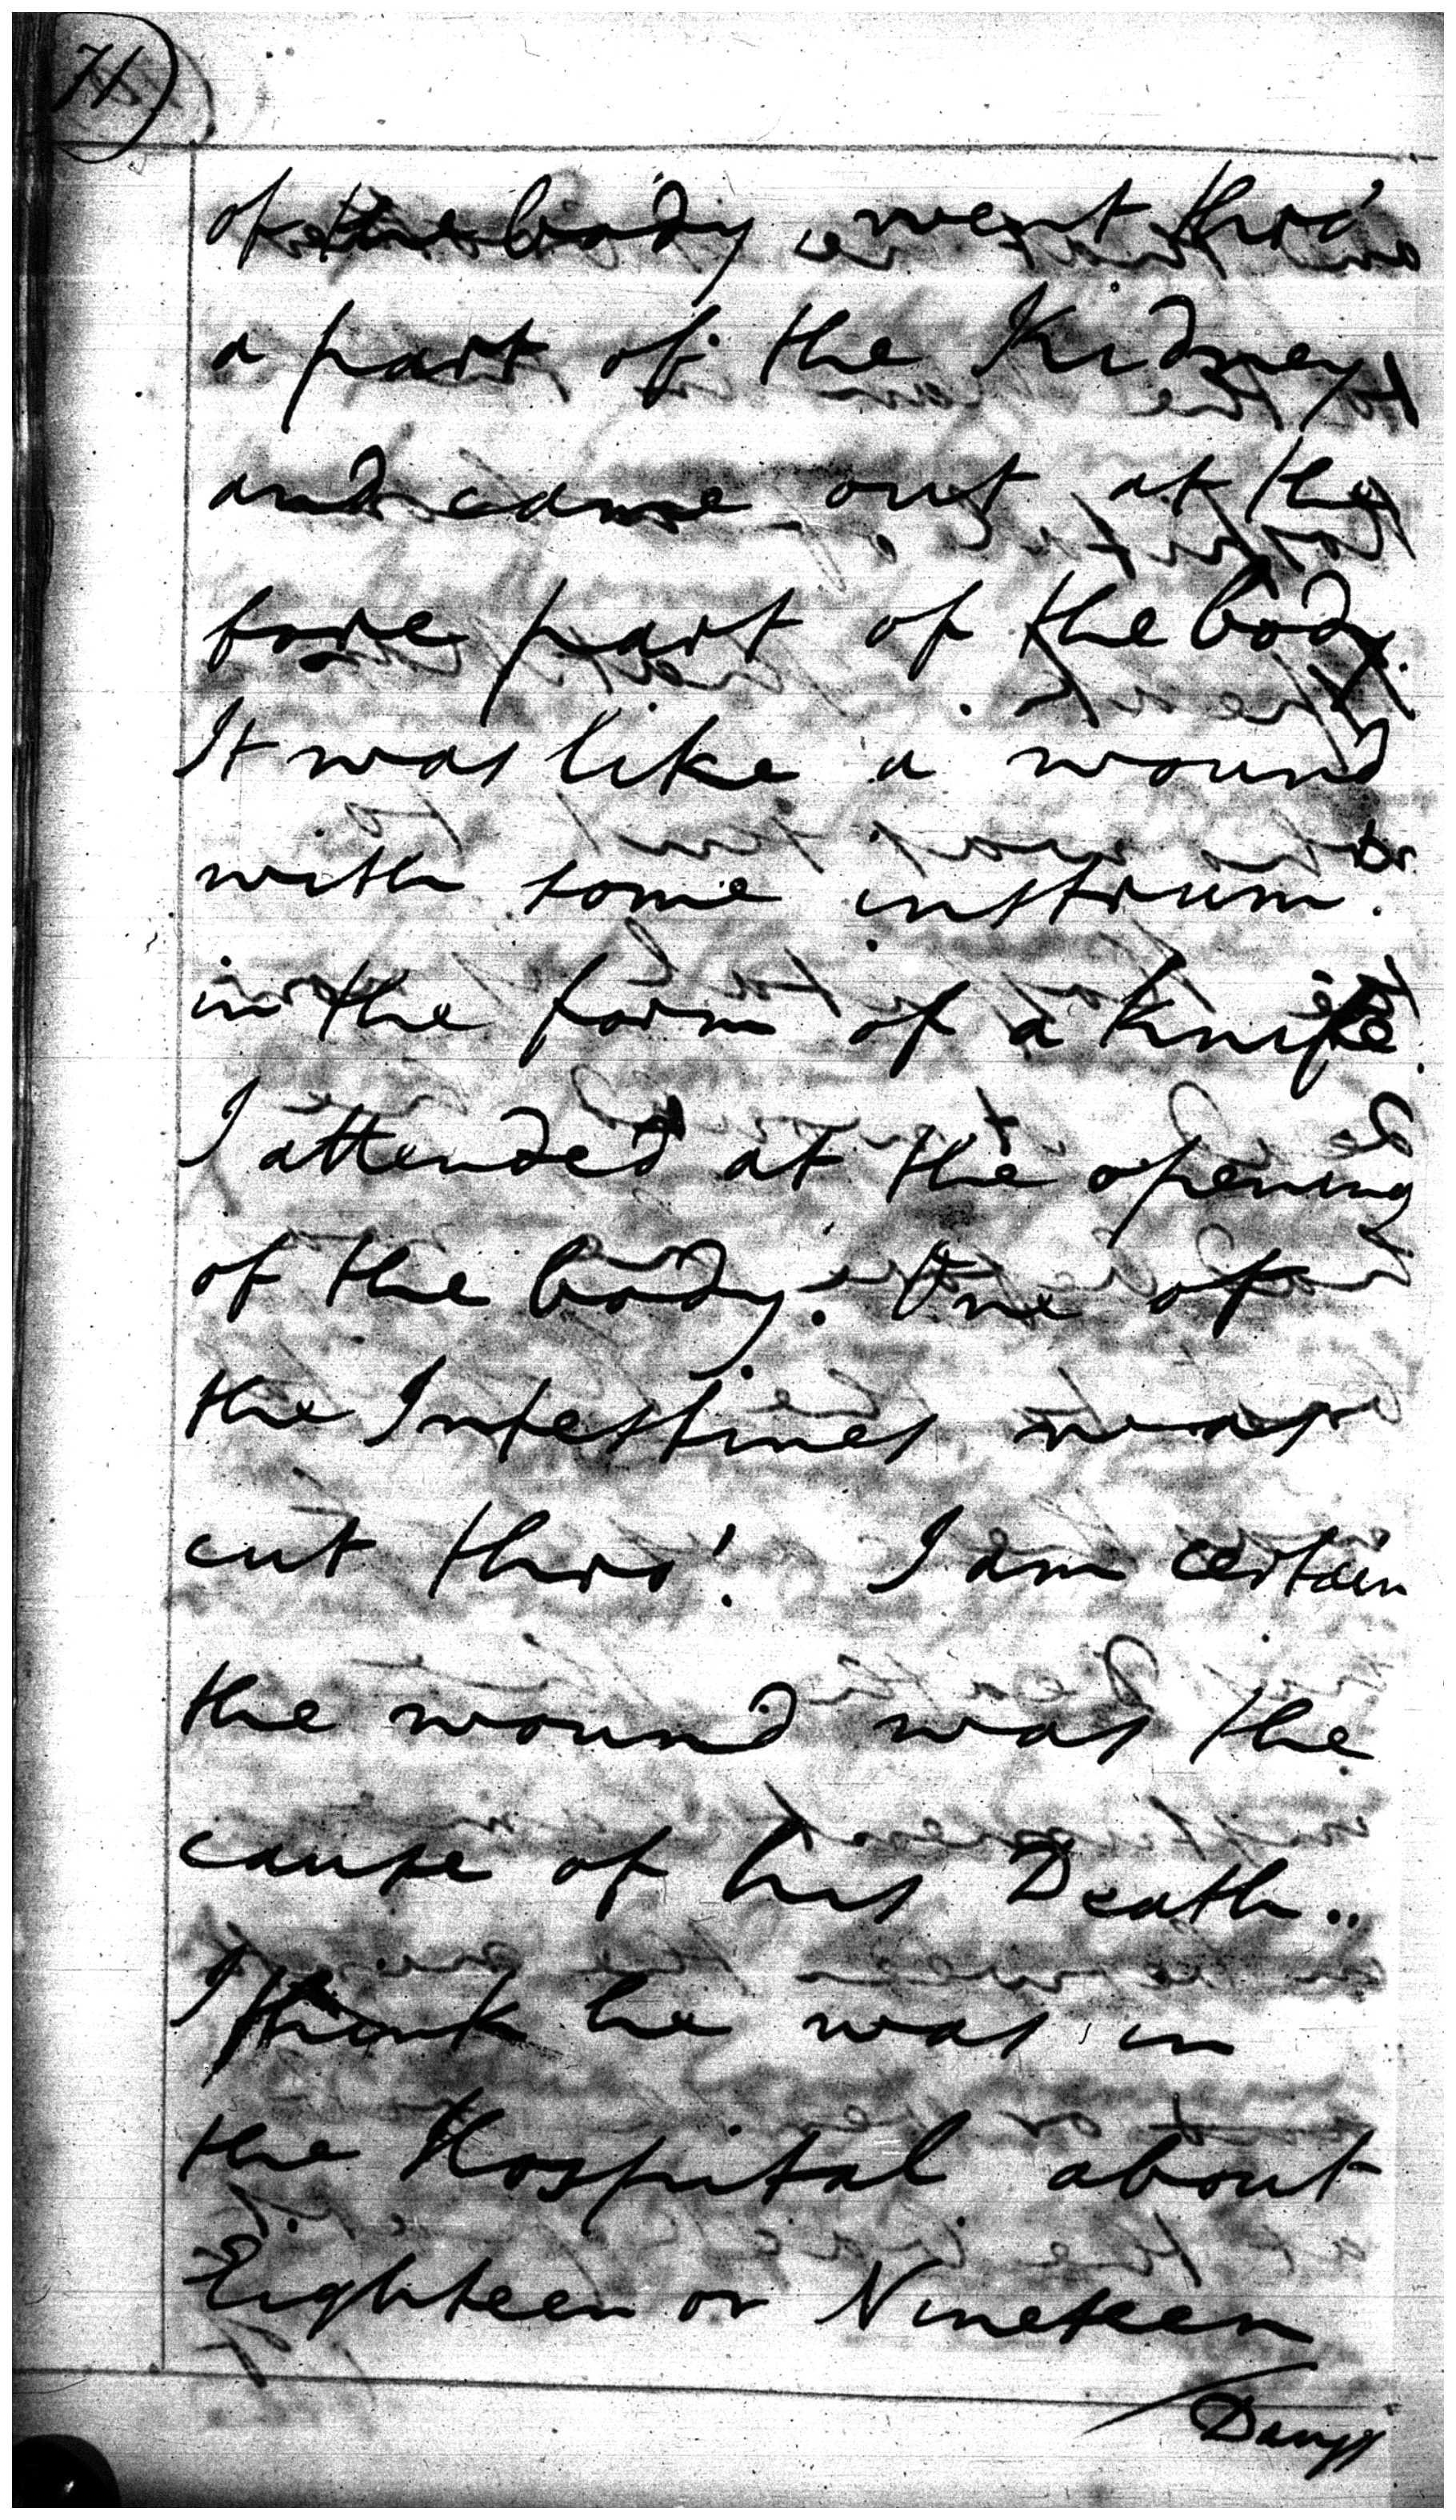 71
of the body went thro'
a part of the Kidney
and came out at the
fore part of the body.
It was like a wound
with some instrum.t
in the form of a knife.
I attended at the opening
of the body. One of
the Intestines was
cut thro'. I am certain
the wound was the
cause of his Death..
I think he was in
the Hospital about
Eighteen or Nineteen
/Days